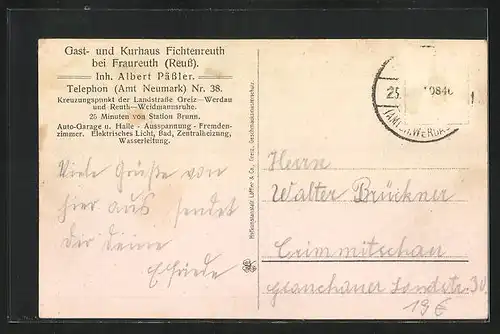 Gast- und Kurhaus Fichtenreuth
bei Fraureuth (Reuß).
Inh. Albert Päßler.
Telephon (Amt Neumark) Nr. 38.
Kreuzungspunkt der Landstraße Greiz—Werdau
und Reuth—Weidmannsruhe.
25 Minuten von Station Brunn.
Auto-Garage u. Halle - Ausspannung - Fremden-
zimmer. Elektrisches Licht, Bad, Zentralheizung,
Wasserleitung.
Viele Grüße von
hier aus sendet
Dir deine
Elfriede
Herrn
Walter Brückner
Crimmitschau
Glauchauer Landstr. 30
19 €
25.